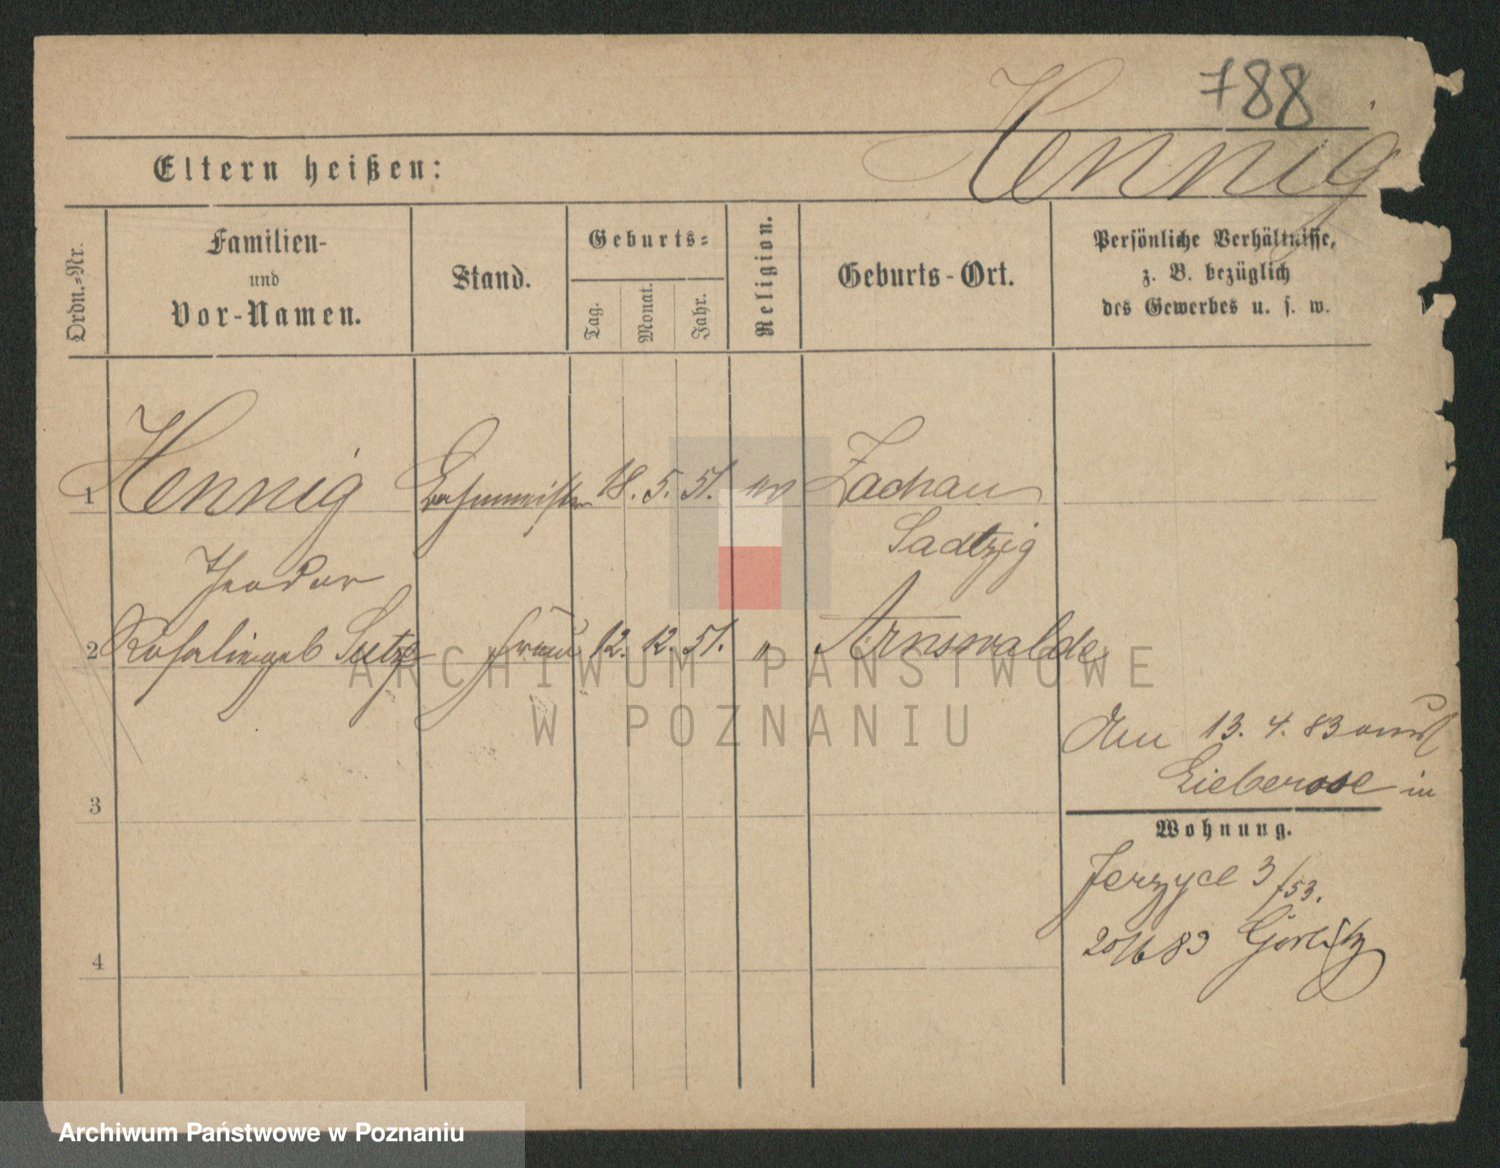 788
Hennig
Eltern heißen:
Ordn.-Nr.
Familien-
und
Vor-Namen.
Stand.
Geburts-
Tag.
Monat.
Jahr.
Religion.
Geburts-Ort.
Persönliche Verhältnisse,
z. B. bezüglich
des Gewerbes u. s. w.
1 Hennig 18. 5. 51. ev Zachau
Sadtzig
Theodor
2 Frau 12. 12. 51. " Arnswalde
ARCHIWUM PAŃSTWOWE
W POZNANIU
den 13. 4. 83
Lieberose in
3
Wohnung.
Jerzyce 3/153.
20/6 83 Görlitz
4
Archiwum Państwowe w Poznaniu